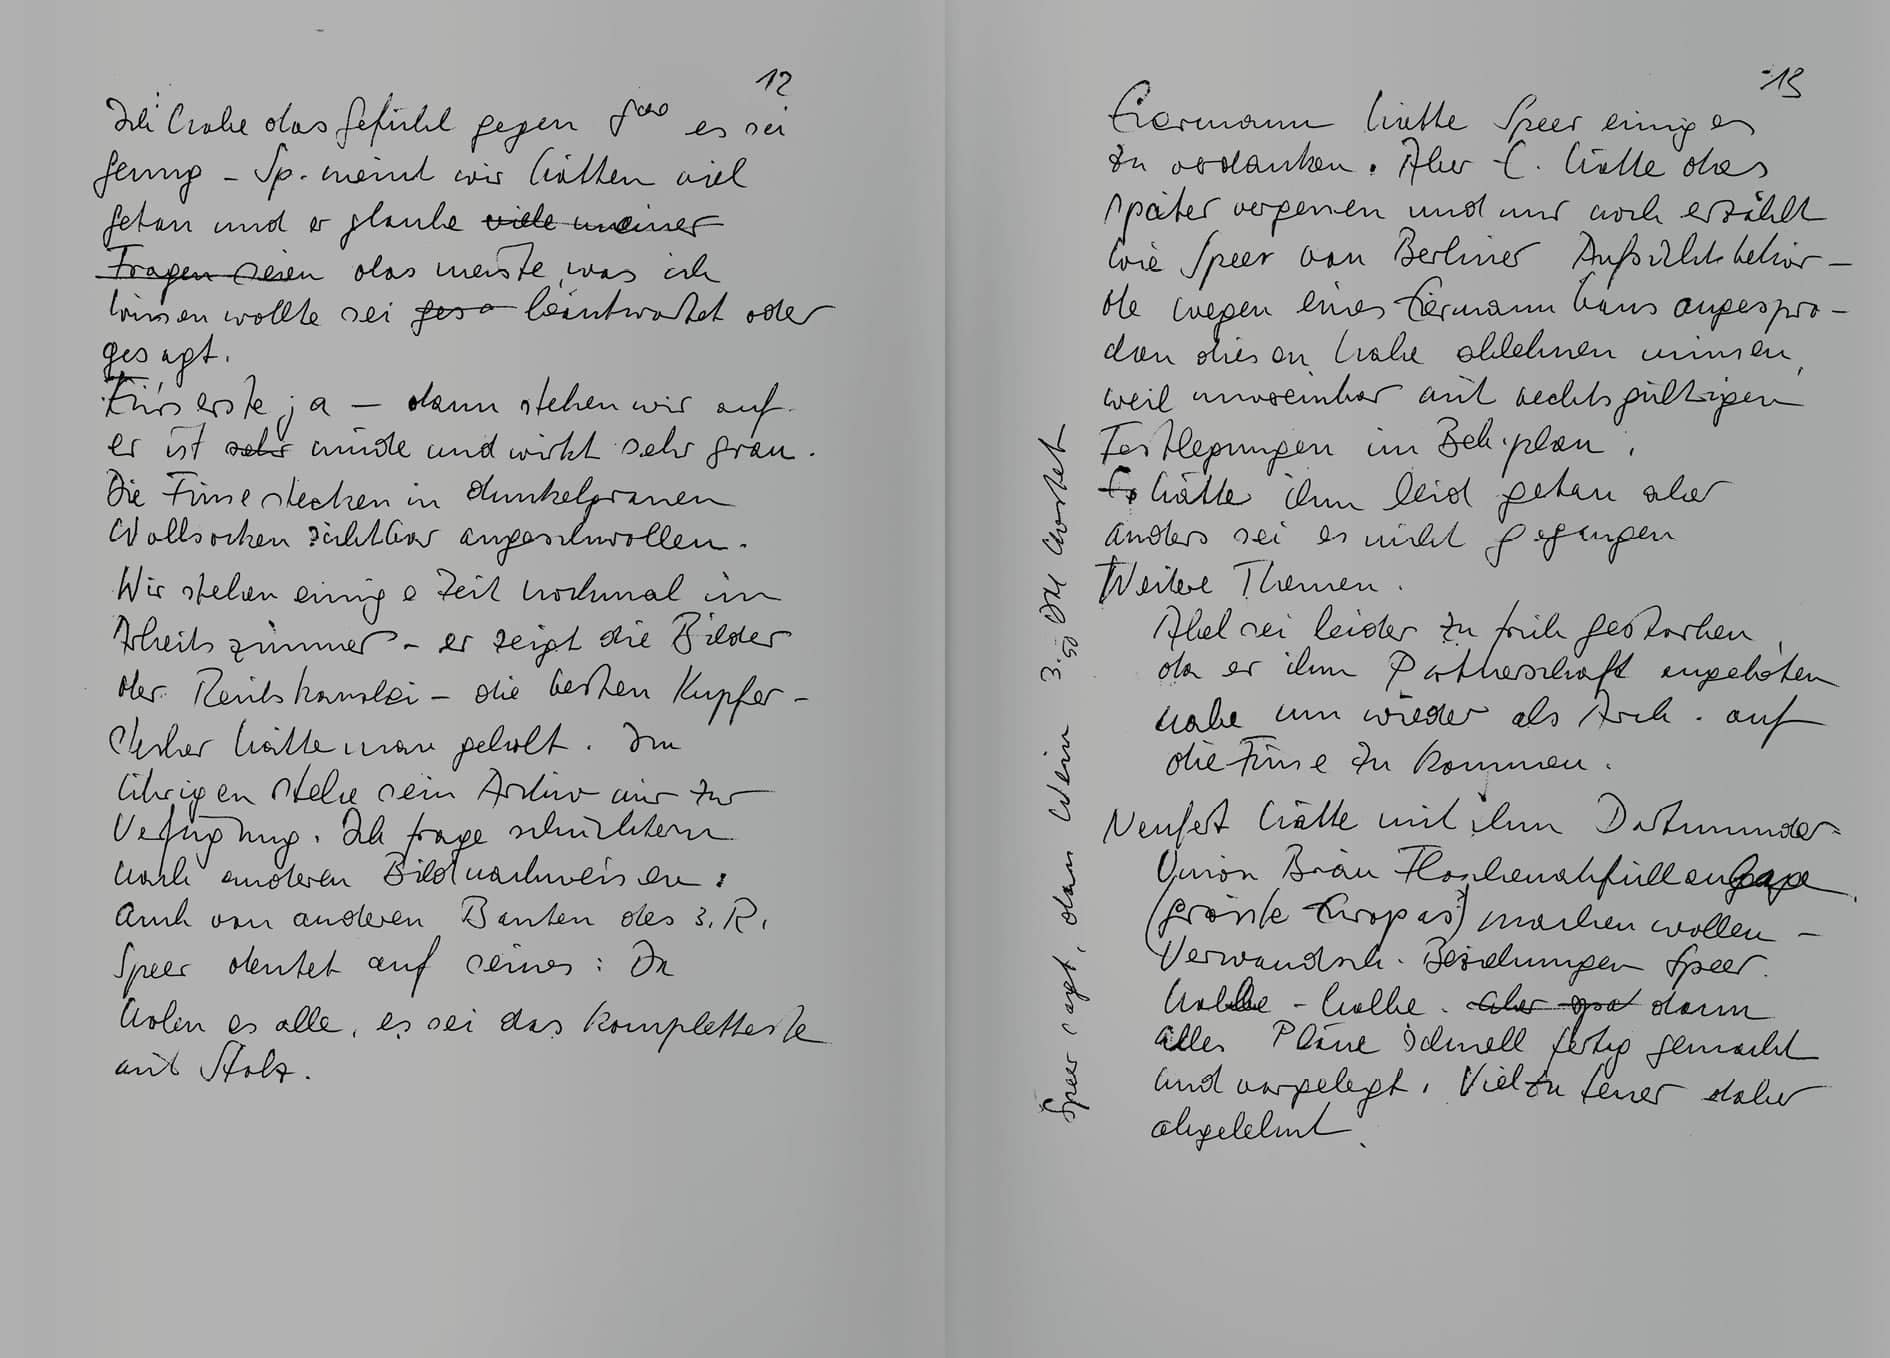 12
Ich habe das Gefühl gegen 5⁰⁰ es sei
genug – Sp. meint wir hätten viel
getan und er glaube viele meiner
Fragen seien das meiste, was ich
wissen wollte sei gesa beantwortet oder
gesagt.
Fürs erste ja – dann stehen wir auf.
er ist sehr müde und wirkt sehr grau.
Die Füsse stecken in dunkelgrauen
Wollsocken sichtbar angeschwollen.
Wir stehen einige Zeit nochmal im
Arbeitszimmer – er zeigt die Bilder
der Reichskanzlei – die besten Kupfer-
stecher hätte man geholt. Im
übrigen stehe sein Archiv mir zur
Verfügung. Ich frage schüchtern
nach anderen Bildnachweisen:
auch von anderen Bauten des 3. R.
Speer deutet auf seines: Da
holen es alle, es sei das kompletteste
mit Stolz.
13
Eiermann hätte Speer einiges
zu verdanken. Aber E. hätte das
später vergessen und nur noch erzählt
wie Speer von Berliner Aufsichtsbehör-
de wegen eines Eiermann baus angespro-
chen diesen habe ablehnen müssen,
weil unvereinbar mit rechtsgültigen
Festlegungen im Beb.plan.
Es hätte ihm leid getan aber
anders sei es nicht gegangen
Weitere Themen.
Abel sei leider zu früh gestorben,
da er ihm Partnerschaft angeboten
habe um wieder als Arch. auf
die Füsse zu kommen.
Neufert hätte mit ihm Dortmunder-
Union Bräu Flaschenabfüllanlage
(grösste Europas) machen wollen –
Verwandsch. Beziehungen Speer.
halbe – halbe. aber dann
alles Pläne schnell fertig gemacht
und vorgelegt. Viel zu teuer daher
abgelehnt.
Speer sagt, dass Wein 3.50 DM kostet